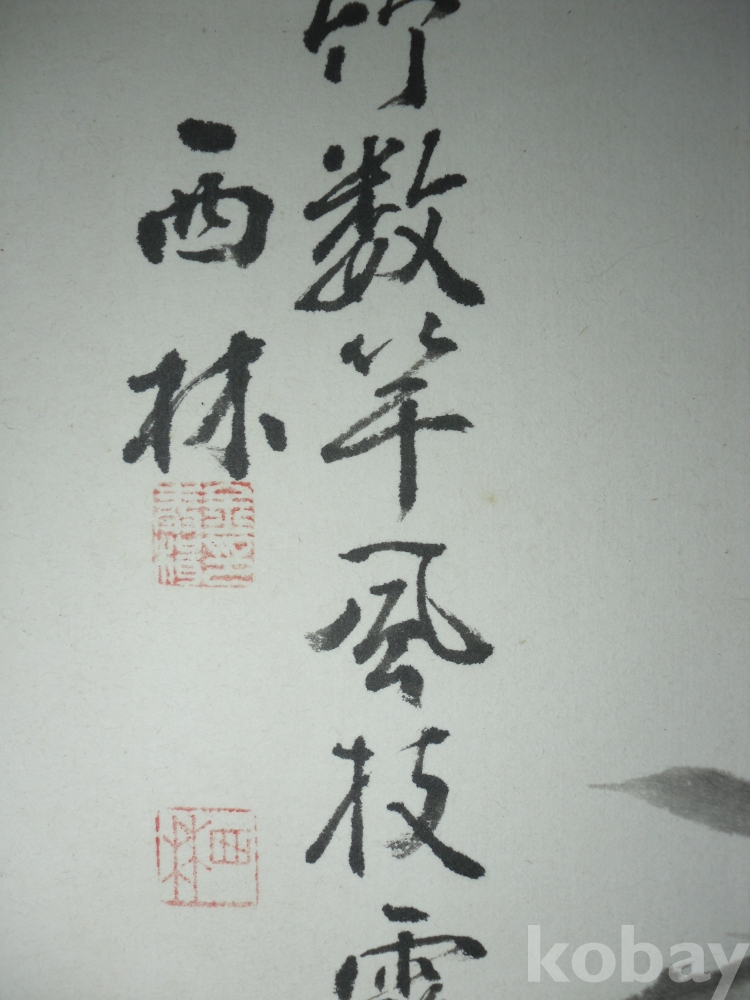 竹数竿風枝雪
西林
西林
kobay